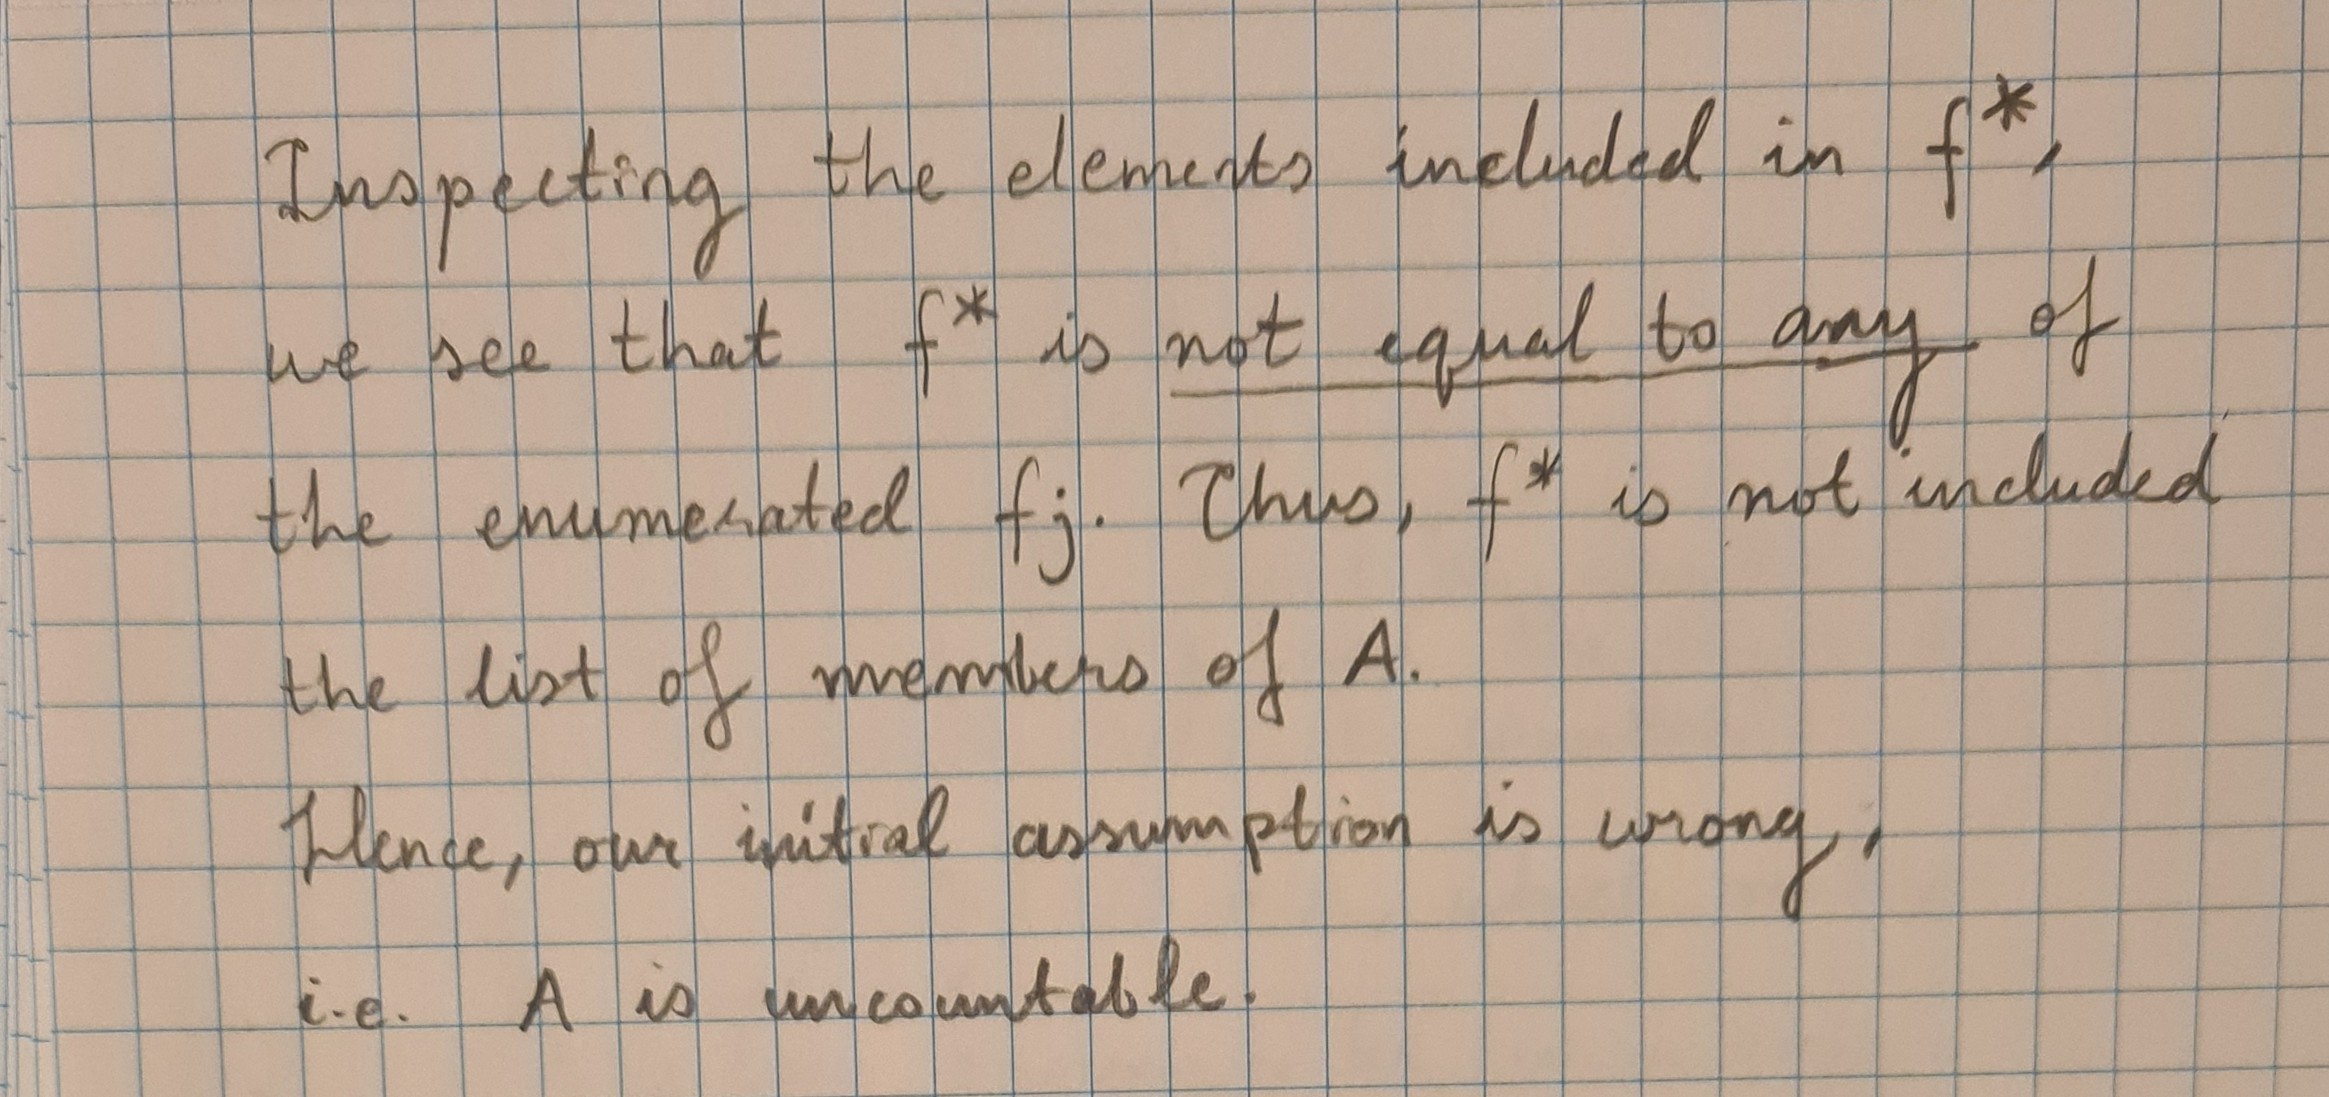 Inspecting the elements included in f*,
we see that f* is not equal to any of
the enumerated fj. Thus, f* is not included
the list of members of A.
Hence, our initial assumption is wrong,
i.e. A is uncountable.